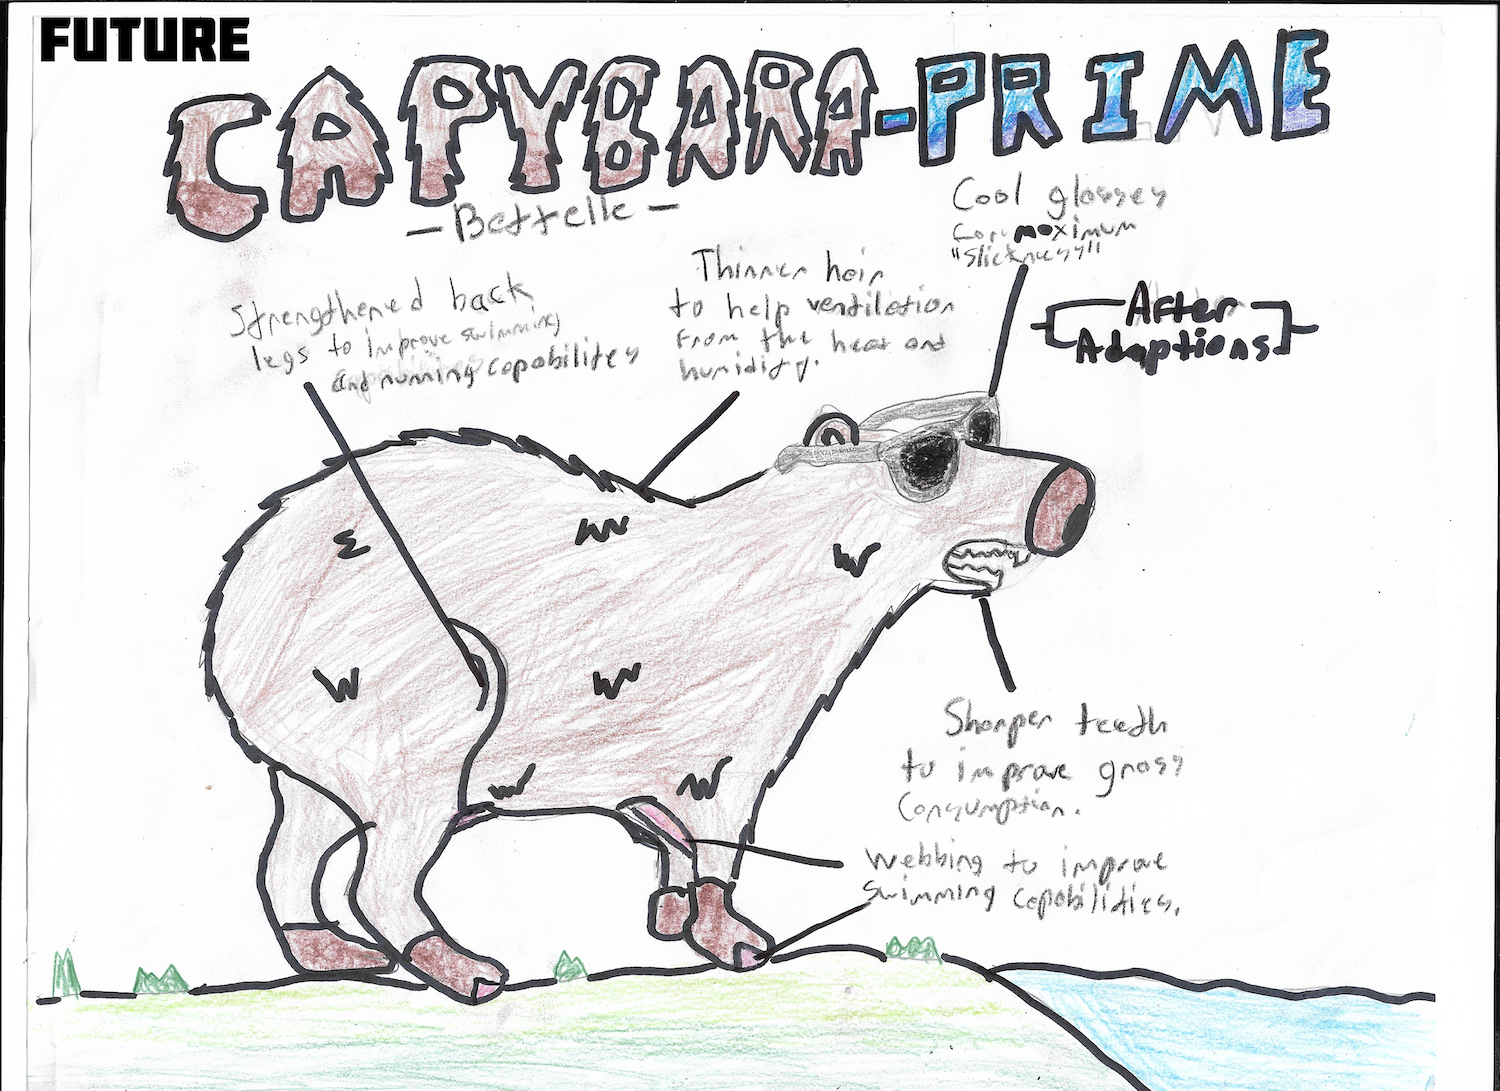 FUTURE
CAPYBARA-PRIME
- Bettelle -
Cool glasses
for maximum
"Slickness"
After
Adaptions
Strengthened back
legs to improve swimming
and running capabilites
Thinner hair
to help ventilation
from the heat and
humidity.
Sharper teeth
to improve grass
consumption.
Webbing to improve
swimming capabilities.